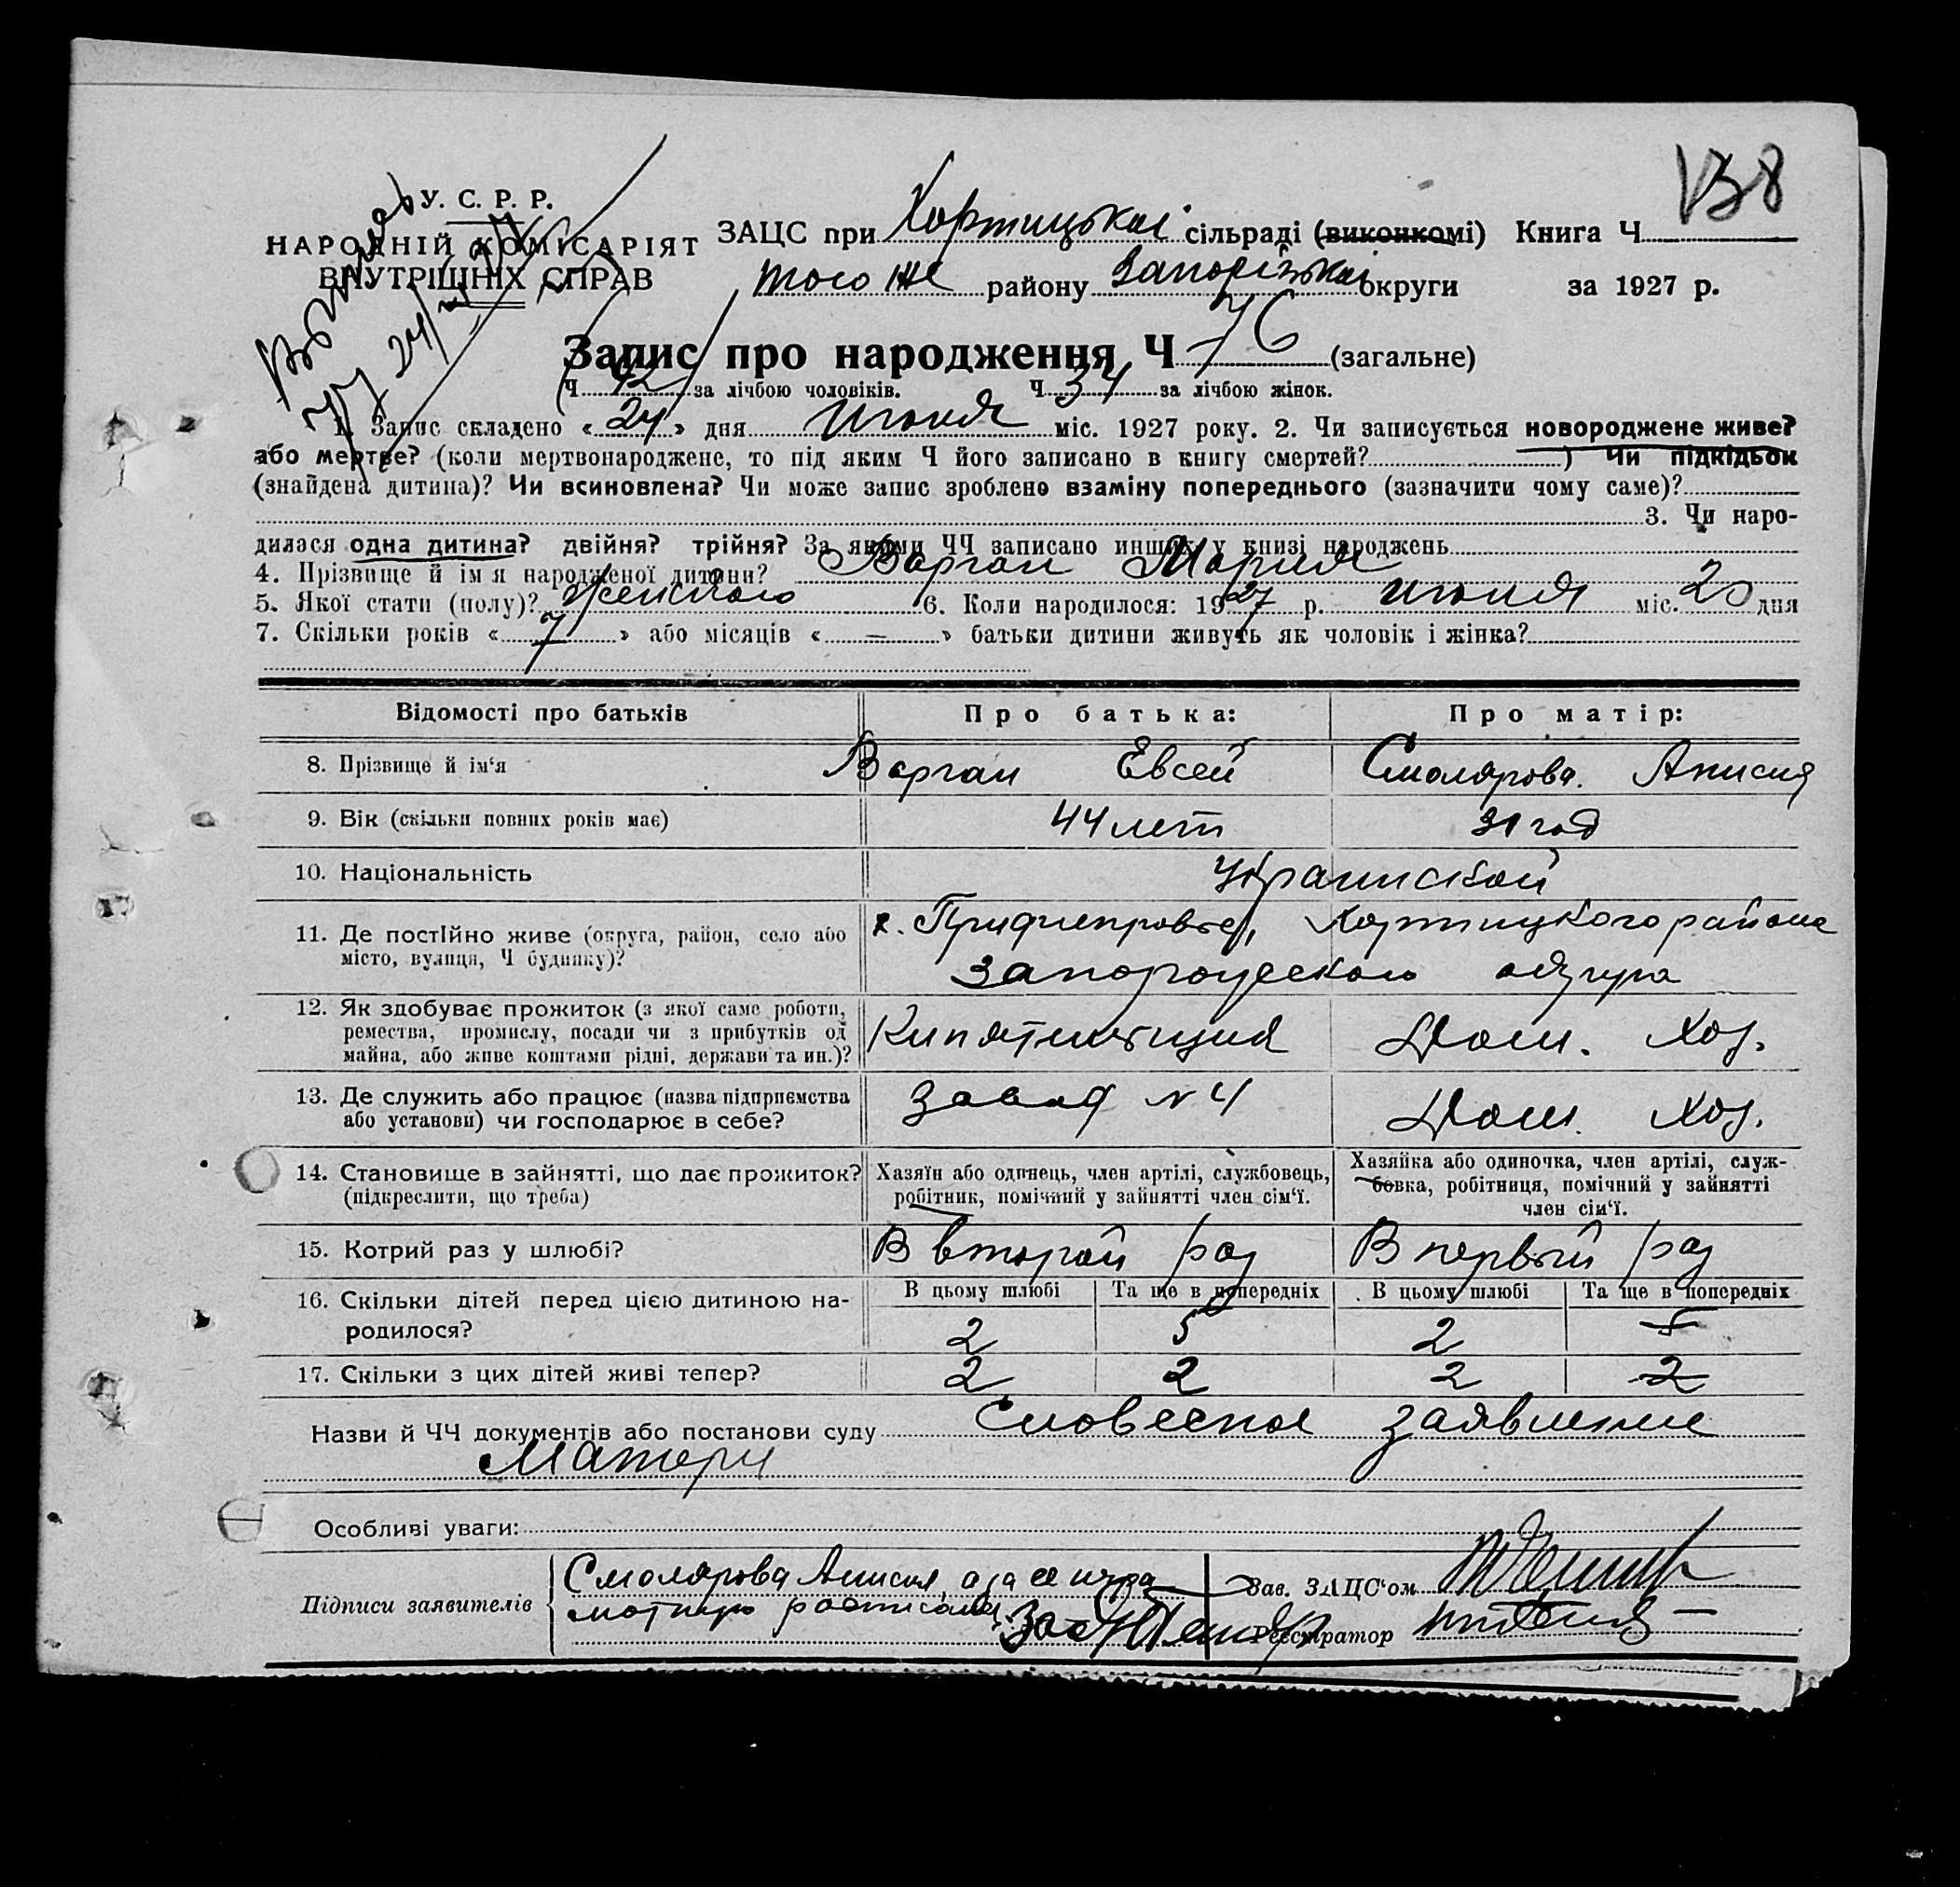 138
У. С. Р. Р.
НАРОДНІЙ КОМІСАРІЯТ
ВНУТРІШНІХ СПРАВ
ЗАЦС при Хортицької сільраді (виконкомі) Книга Ч
того же району Запорізької округи за 1927 р.
Запис про народження Ч 76 (загальне)
Ч 42 за лічбою чоловіків. Ч 34 за лічбою жінок.
1. Запис складено « 24 » дня июня міс. 1927 року. 2. Чи записується новороджене живе?
або мертве? (коли мертвонароджене, то під яким Ч його записано в книгу смертей? ) Чи підкідьок
(знайдена дитина)? Чи всиновлена? Чи може запис зроблено взаміну попереднього (зазначити чому саме)?
3. Чи наро-
дилася одна дитина? двійня? трійня? За якими ЧЧ записано инших у книзі народжень
4. Прізвище й ім я народженої дитини? Варган Мария
5. Якої стати (полу)? Женского 6. Коли народилося: 1927 р. июня міс. 20 дня
7. Скільки років « 7 » або місяців « — » батьки дитини живуть як чоловік і жінка?
Відомості про батьків Про батька: Про матір:
8. Прізвище й ім‘я Варган Евсей Смолярова. Анисия
9. Вік (скільки повних років має) 44 лет 31 год
10. Національність Украинской
11. Де постійно живе (округа, район, село або х. Приднепровье, Хортицкого района
місто, вулиця, Ч будинку)? Запорожского округа
12. Як здобуває прожиток (з якої саме роботи,
ремества, промислу, посади чи з прибутків од
майна, або живе коштами рідні, держави та ин.)? Кипятильщик Дом. Хоз.
13. Де служить або працює (назва підприємства Завод N 4
або установи) чи господарює в себе? Дом. Хоз.
14. Становище в зайнятті, що дає прожиток? Хазяїн або одинець, член артілі, службовець, Хазяйка або одиночка, член артілі, служ-
(підкреслити, що треба) робітник, помічний у зайнятті член сім‘ї. бовка, робітниця, помічний у зайнятті
член сім‘ї.
15. Котрий раз у шлюбі? В второй раз В первый раз
16. Скільки дітей перед цією дитиною на- В цьому шлюбі Та ще в попередніх В цьому шлюбі Та ще в попередніх
родилося? 2 5 2 5
17. Скільки з цих дітей живі тепер? 2 2 2 2
Назви й ЧЧ документів або постанови суду Словесное заявление
Матери
Особливі уваги:
Підписи заявителів Смолярова Анисия, а за ее негра
мотную расписался Зав. ЗАЦС‘ом
Реєстратор